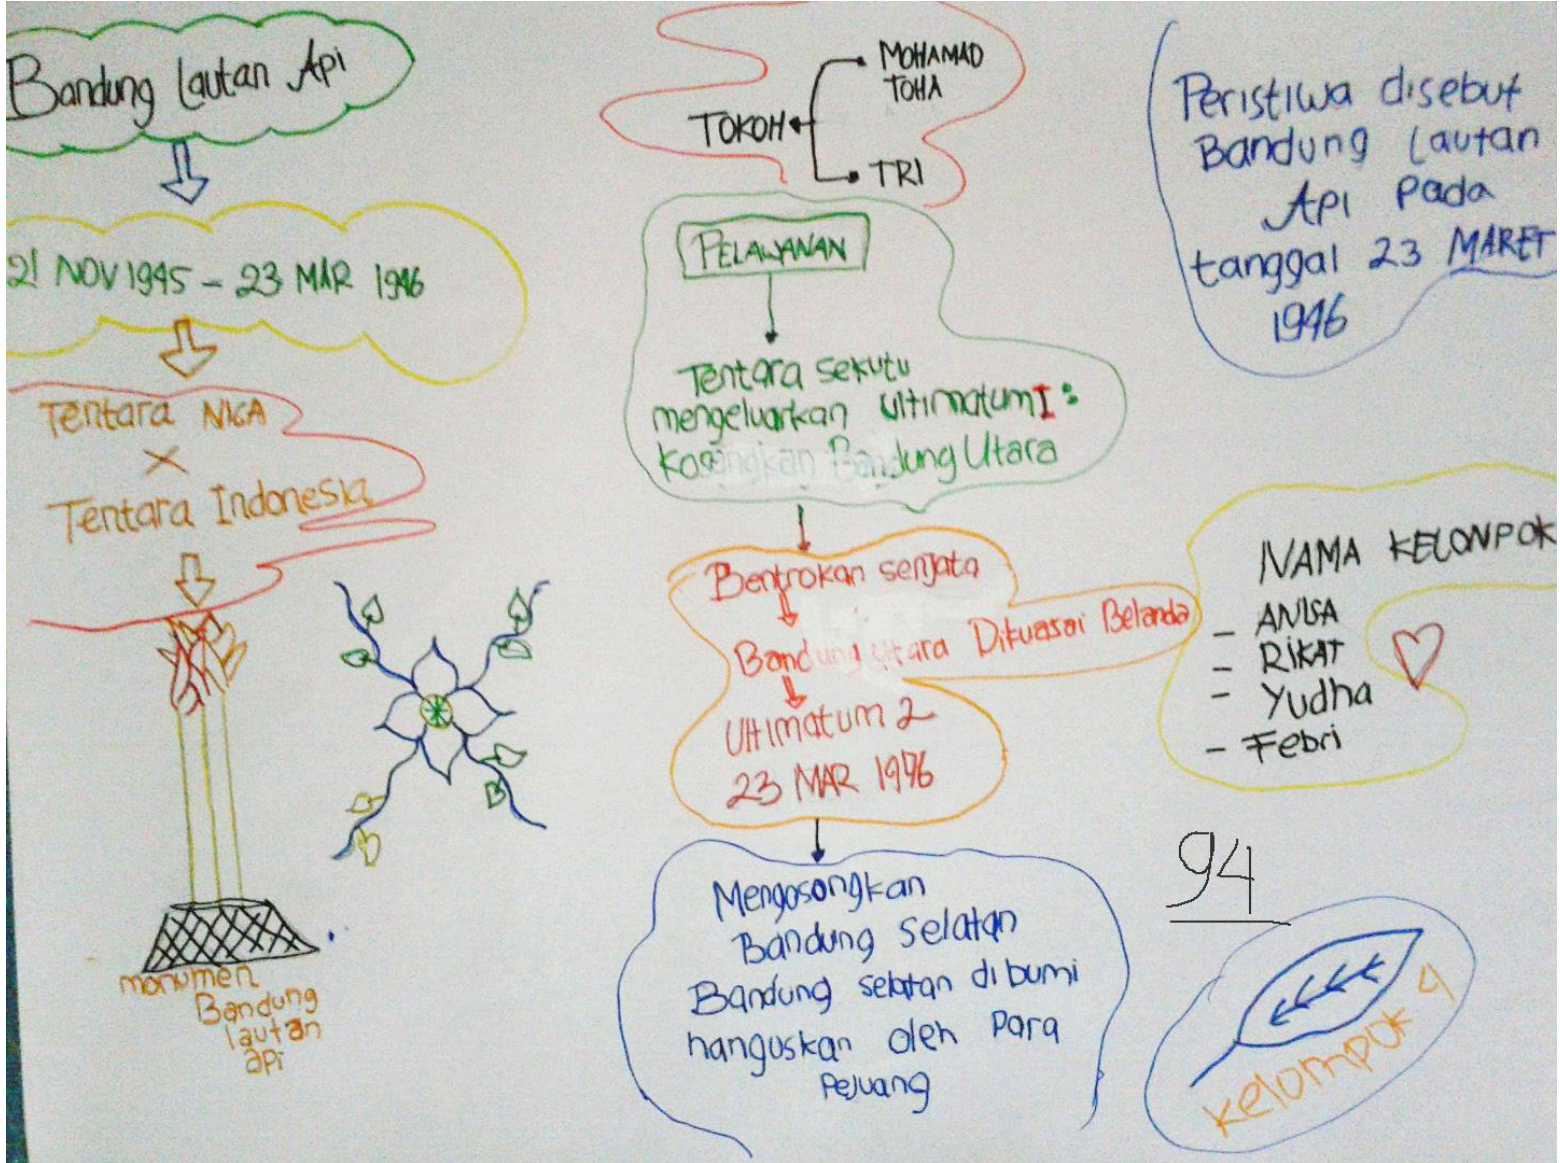 Bandung Lautan Api
21 NOV 1945 - 23 MAR 1946
Tentara NICA
X
Tentara Indonesia
monumen
Bandung
lautan
api
TOKOH
MOHAMAD
TOHA
TRI
PELAWANAN
Tentara sekutu
mengeluarkan ultimatum I :
kosongkan Bandung Utara
Bentrokan senjata
Bandung Utara Dikuasai Belanda
Ultimatum 2
23 MAR 1946
Mengosongkan
Bandung Selatan
Bandung selatan di bumi
hanguskan oleh Para
Pejuang
Peristiwa disebut
Bandung Lautan
Api Pada
tanggal 23 MARET
1946
NAMA KELONPOK
- ANISA
- RIKAT
- Yudha
- Febri
94
Kelompok 4